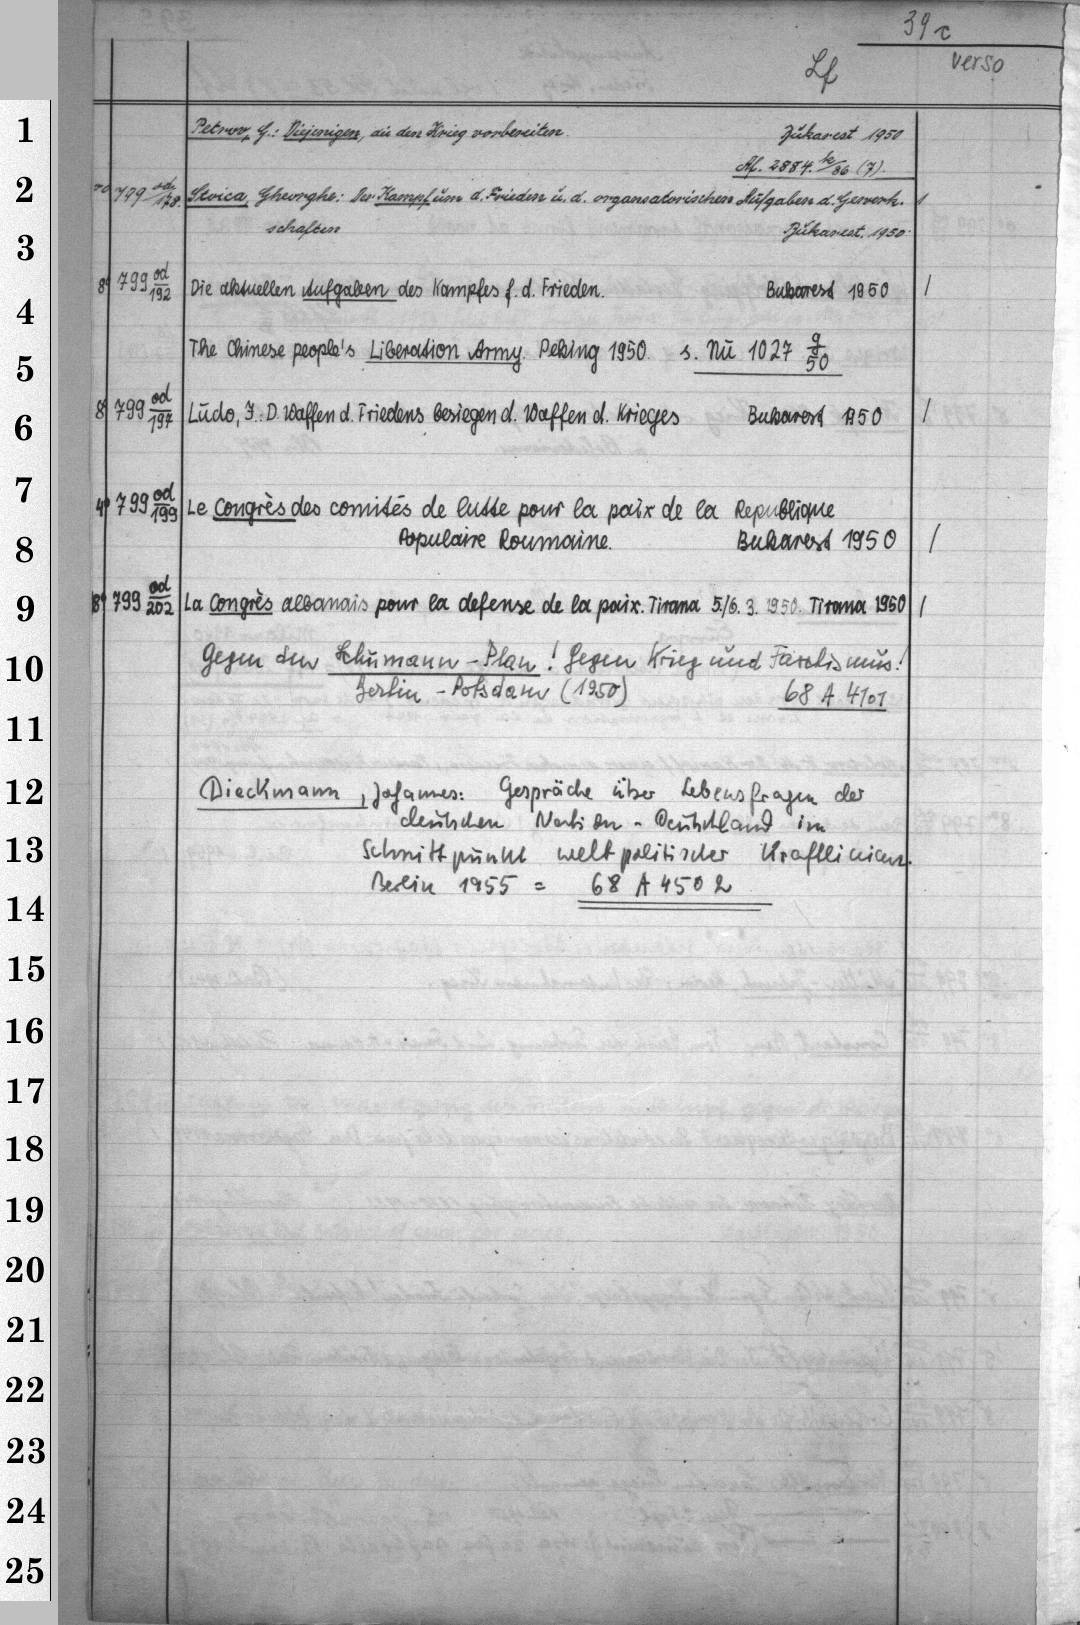 39 c
verso
Lf
1 Petrov, G.: Diejenigen, die den Krieg vorbereiten. Bukarest 1950
Af. 2884. (7).
2 799 od/178. Stoica, Gheorghe: Der Kampf um d. Frieden u. d. organsatorischen Aufgaben d. Gewerk- /
3 schaften Bukarest. 1950
4 8° 799 od/192 Die aktuellen Aufgaben des Kampfes f. d. Frieden. Bukarest 1950 /
5 The Chinese people's Liberation Army. Peking 1950. s. Nü 1027 9/50
6 8° 799 od/197 Ludo, I.: D. Waffen d. Friedens besiegen d. Waffen d. Krieges Bukarest 1950 /
7 4° 799 od/199 Le Congrès des comités de lutte pour la paix de la Republique
8 Populaire Roumaine. Bukarest 1950 /
9 8° 799 od/202 La Congrès albanais pour la defense de la paix. Tirana 5./6. 3. 1950. Tirana 1950 /
10 Gegen den Schumann-Plan! Gegen Krieg und Faschismus!
Berlin-Potsdam (1950) 68 A 4101
11
12 Dieckmann, Johannes: Gespräche über Lebensfragen der
deutschen Nation - Deutschland im
13 Schnittpunkt weltpolitischer Kraftlinien.
Berlin 1955 = 68 A 4502
14
15
16
17
18
19
20
21
22
23
24
25